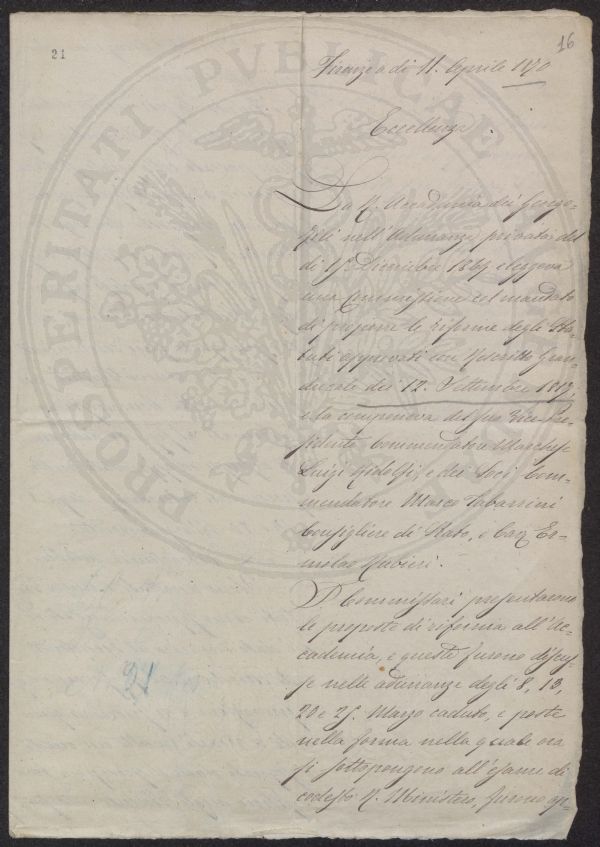 21
16
Firenze a di 11. Aprile 1870
Eccellenza
La R. Accademia dei Georgo-
fili nell'Adunanza privata del
di Dicembre 1869 eleggeva
una Commissione col mandato
di proporre le riforme degli Sta-
tuti approvati con Rescritto Gran-
ducale dei 12. Settembre 1817,
e la componeva del suo Vice-Pre-
sidente Commendatore Marchese
Luigi Ridolfi, e dei Soci Com-
mendatore Marco Tabarrini
Consigliere di Stato, e Cav. Er-
molao Rubieri.
I Commissari presentarono
le proposte di riforma all'Ac-
cademia, e queste furono discus-
se nelle adunanze degli 8, 13,
20 e 25. Marzo caduto, e poste
nella forma nella quale ora
si sottopongono all'esame di
codesto R. Ministero, furono ap-
21
PROSPERITATI PVBLICAE